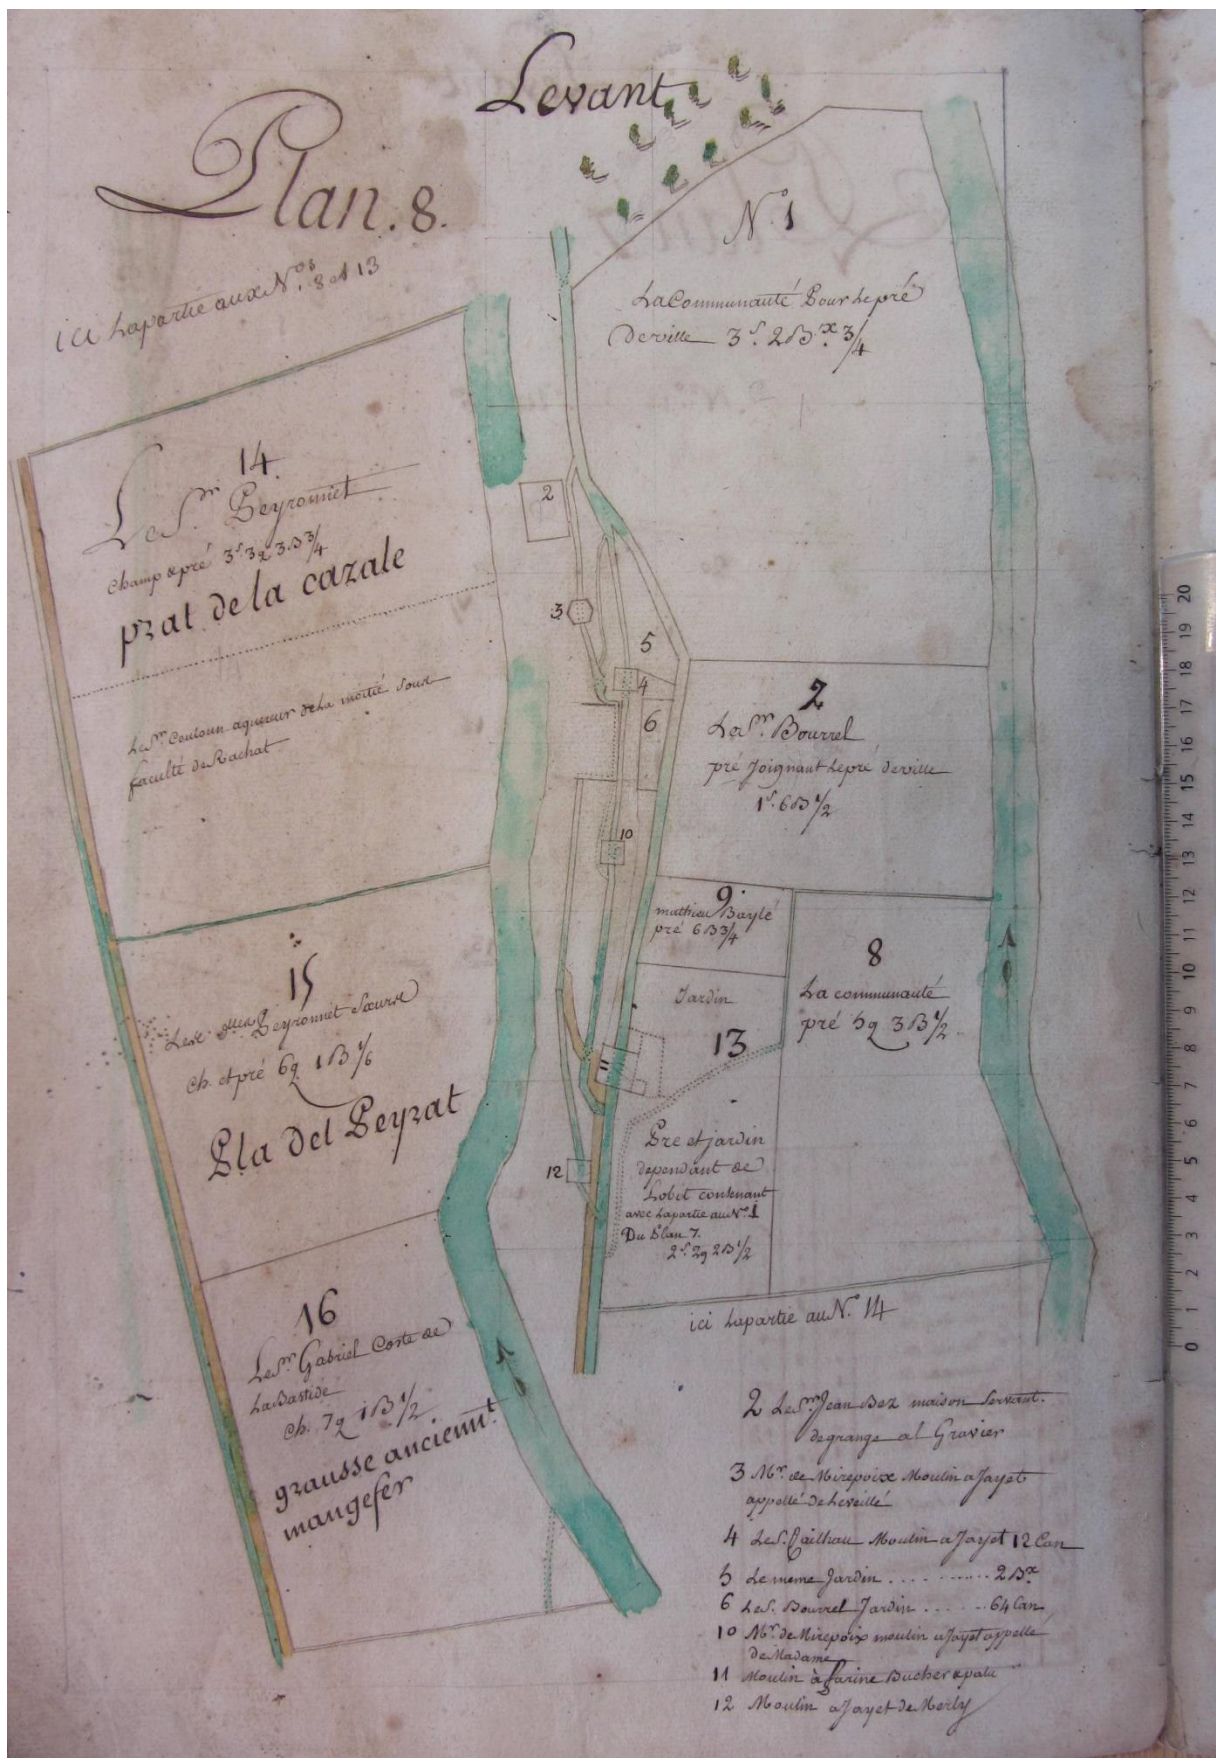 Levant
Plan. 8.
ici Lapartie aux Nos. 8 et 13
No. 1
La Communauté Pour Le pré
De ville 3s. 2Bx. 3/4
14
Le Sr. Peyronnet
champ & pré 3s. 3q 3B 3/4
prat de la cazale
Le Sr. Couloun aquereur de La moitié sous
faculté de Rachat
2
3
5
4
6
10
2
Le Sr. Bourrel
pré Joignant Le pré de ville
1s. 6B 1/2
9.
mathieu Baylé
pré 6B 3/4
8
La communauté
pré 5q 3B 1/2
Jardin
13
11
12
Pre et jardin
dependant de
Lobit contenant
avec Lapartie au No. 1
Du Plan 7.
2s. 2q 2B 1/2
ici Lapartie au No. 14
15
Peyronnet Sœurs
Ch. et pré 6q 1B 1/6
Pla Del Peyrat
16
Le Sr. Gabriel Coste de
La Bastide
Ch. 7q 1B 1/2
grausse ancienmt.
mangefer
2 Le Sr. Jean Bez maison Servant.
de grange al Gravier
3 Mr. de Mirepoix Moulin a Jayet
appellé de Leveillé
4 Le S. Cailhau Moulin a Jayet 12 Can
5 Le meme Jardin . . . . . . . . . . . 2 Bx
6 Le S. Bourrel Jardin . . . . . . 64 Can
10 Mr. de Mirepoix moulin a Jayet appellé
de Madame
11 Moulin à farine Bucher & patu
12 Moulin a Jayet de Merly
0 1 2 3 4 5 6 7 8 9 10 11 12 13 14 15 16 17 18 19 20